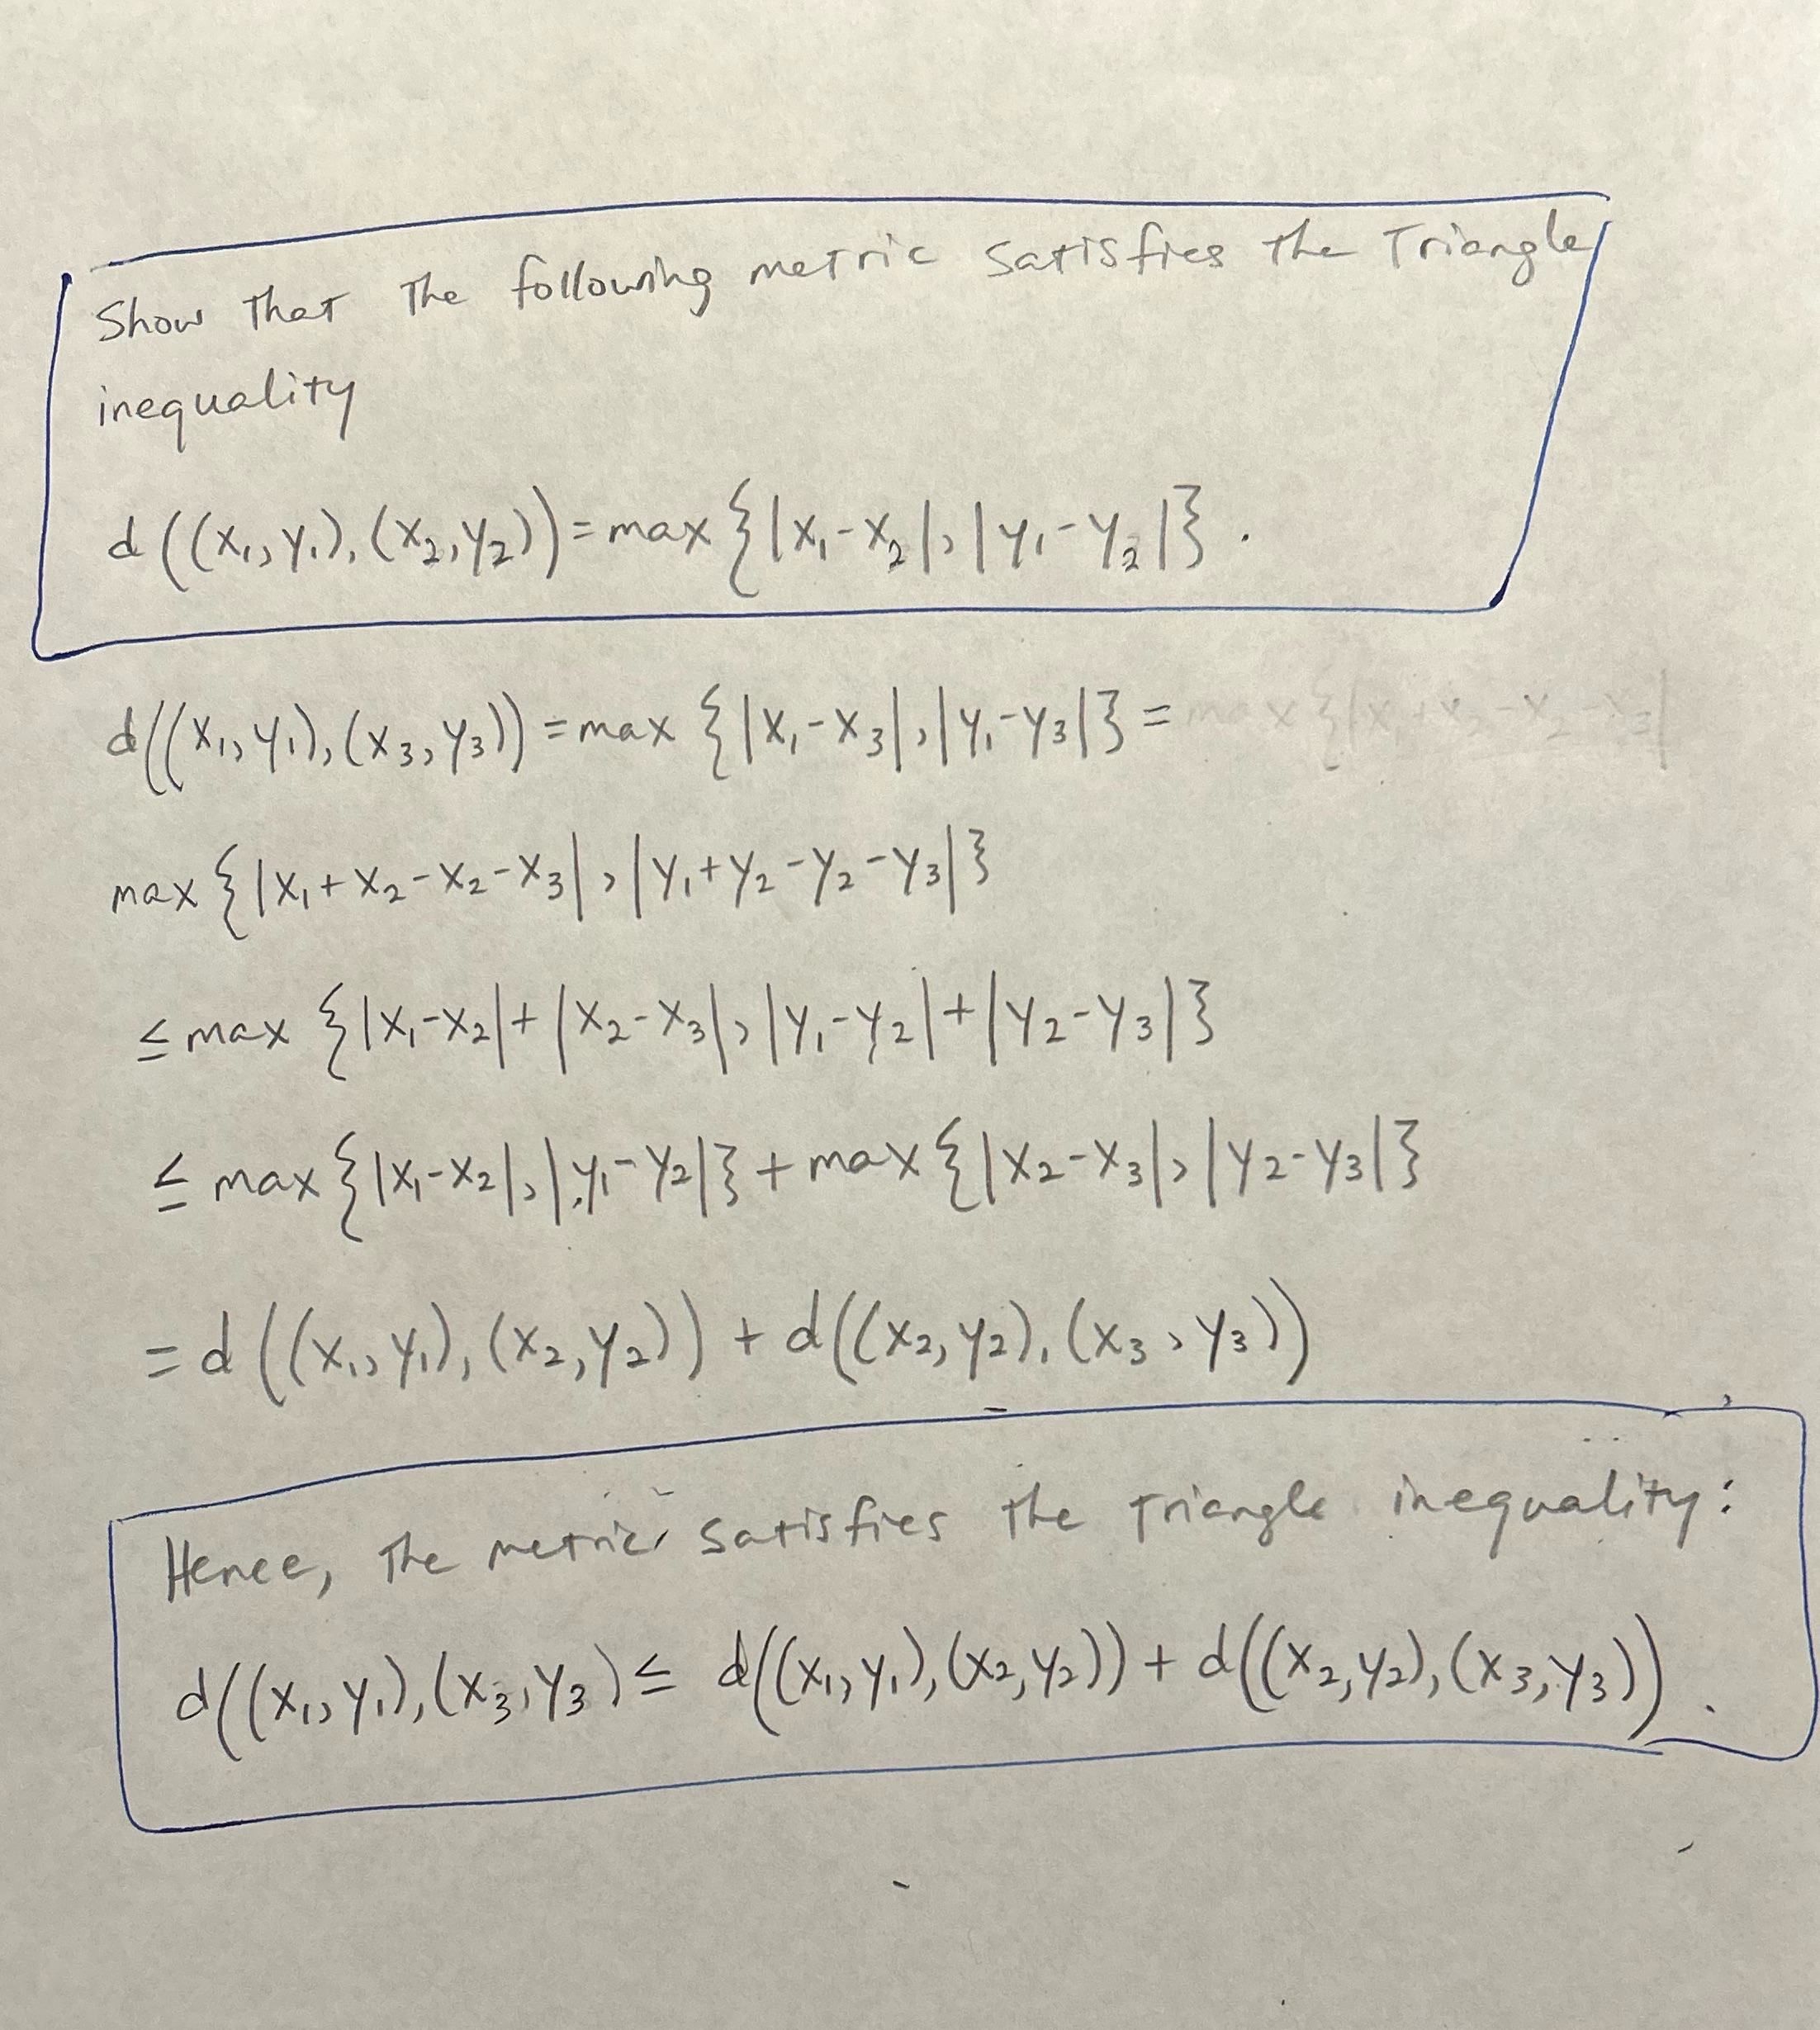 Show that the following metric satisfies the Triangle
inequality
d((x₁,y₁),(x₂,y₂))=max{|x₁-x₂|,|y₁-y₂|}.
d((x₁,y₁),(x₃,y₃))=max{|x₁-x₃|,|y₁-y₃|}=
max{|x₁+x₂-x₂-x₃|,|y₁+y₂-y₂-y₃|}
≤max{|x₁-x₂|+|x₂-x₃|,|y₁-y₂|+|y₂-y₃|}
≤max{|x₁-x₂|,|y₁-y₂|}+max{|x₂-x₃|,|y₂-y₃|}
=d((x₁,y₁),(x₂,y₂))+d((x₂,y₂),(x₃,y₃))
Hence, the metric satisfies the triangle inequality:
d((x₁,y₁),(x₃,y₃)≤ d((x₁,y₁),(x₂,y₂))+d((x₂,y₂),(x₃,y₃)).